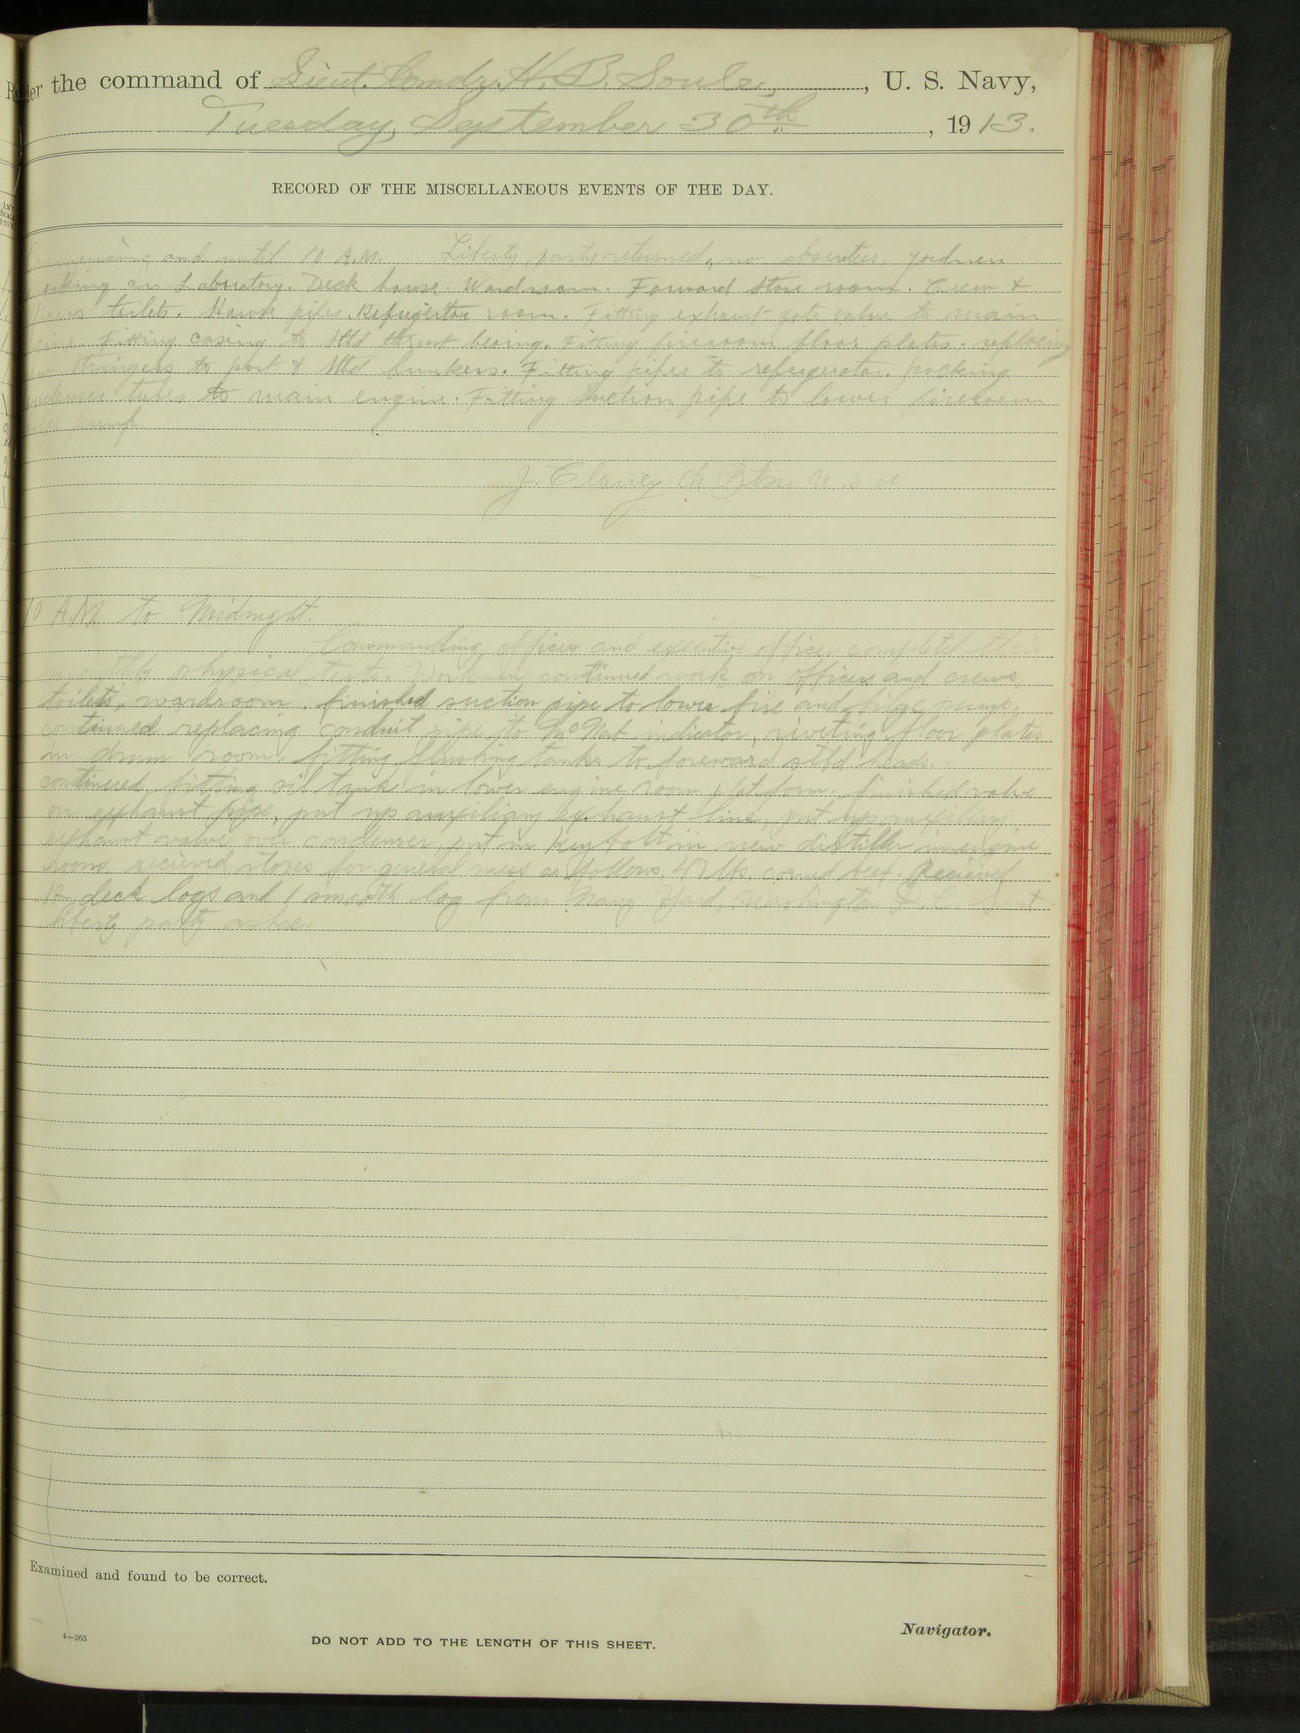 the command of Lieut. Comdr. H. B. Soule, , U. S. Navy,
Tuesday, September 30th , 1913.
RECORD OF THE MISCELLANEOUS EVENTS OF THE DAY.
and until 10 A.M. Liberty party returned, no absentees.
in Laboratory. Deck house. Wardroom. Forward Store room. Crew &
toilets. Hawse pipes. Refrigerator room. Fitting exhaust gate valve to main
Fitting casing to Stbd thrust bearing. Fitting fireroom floor plates. replacing
stringers to port & Stbd bunkers. Fitting pipes to refrigerator. packing
tubes to main engine. Fitting suction pipe to lower fireroom
pump.
J. Clancy Ch Btsn U.S.N
10 A.M. to Midnight.
Commanding officer and executive officer completed their
monthly physical tests. Workmen continued work on officers and crews
toilets, wardroom. finished suction pipe to lower fire and bilge pump,
continued replacing conduit pipe to indicator, riveting floor plates
in room, fitting flushing tanks to foreward stbd heads.
continued fitting oil tanks in lower engine room platform. finished valve
on exhaust pipe, put up auxiliary exhaust line, put up auxiliary
exhaust valve over condenser, put in key bolt in new distiller in engine
room. recieved stores for general mess as follows, 47 lbs. corned beef. Recieved
12 deck logs and 1 smooth log from Navy Yard, Washington D.C. Sent
liberty party ashore.
Examined and found to be correct.
4—265
DO NOT ADD TO THE LENGTH OF THIS SHEET.
Navigator.